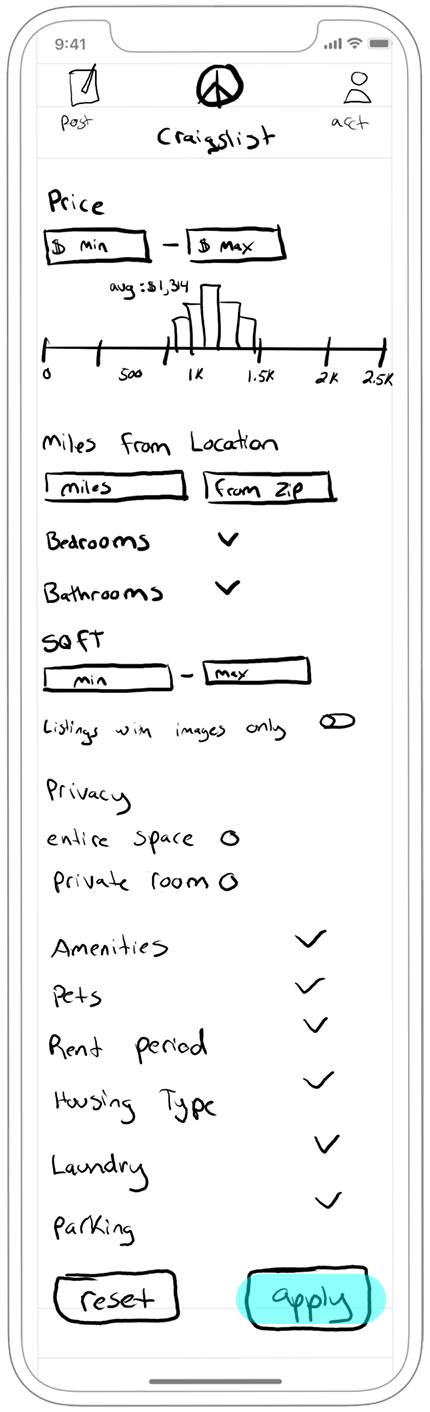 9:41
Post
acct
Craigslist
Price
$ min - $ max
avg: $1,314
0 500 1K 1.5K 2K 2.5K
Miles from Location
miles from zip
Bedrooms
Bathrooms
SQFT
min - max
Listings with images only
Privacy
entire space
private room
Amenities
Pets
Rent period
Housing Type
Laundry
Parking
reset apply